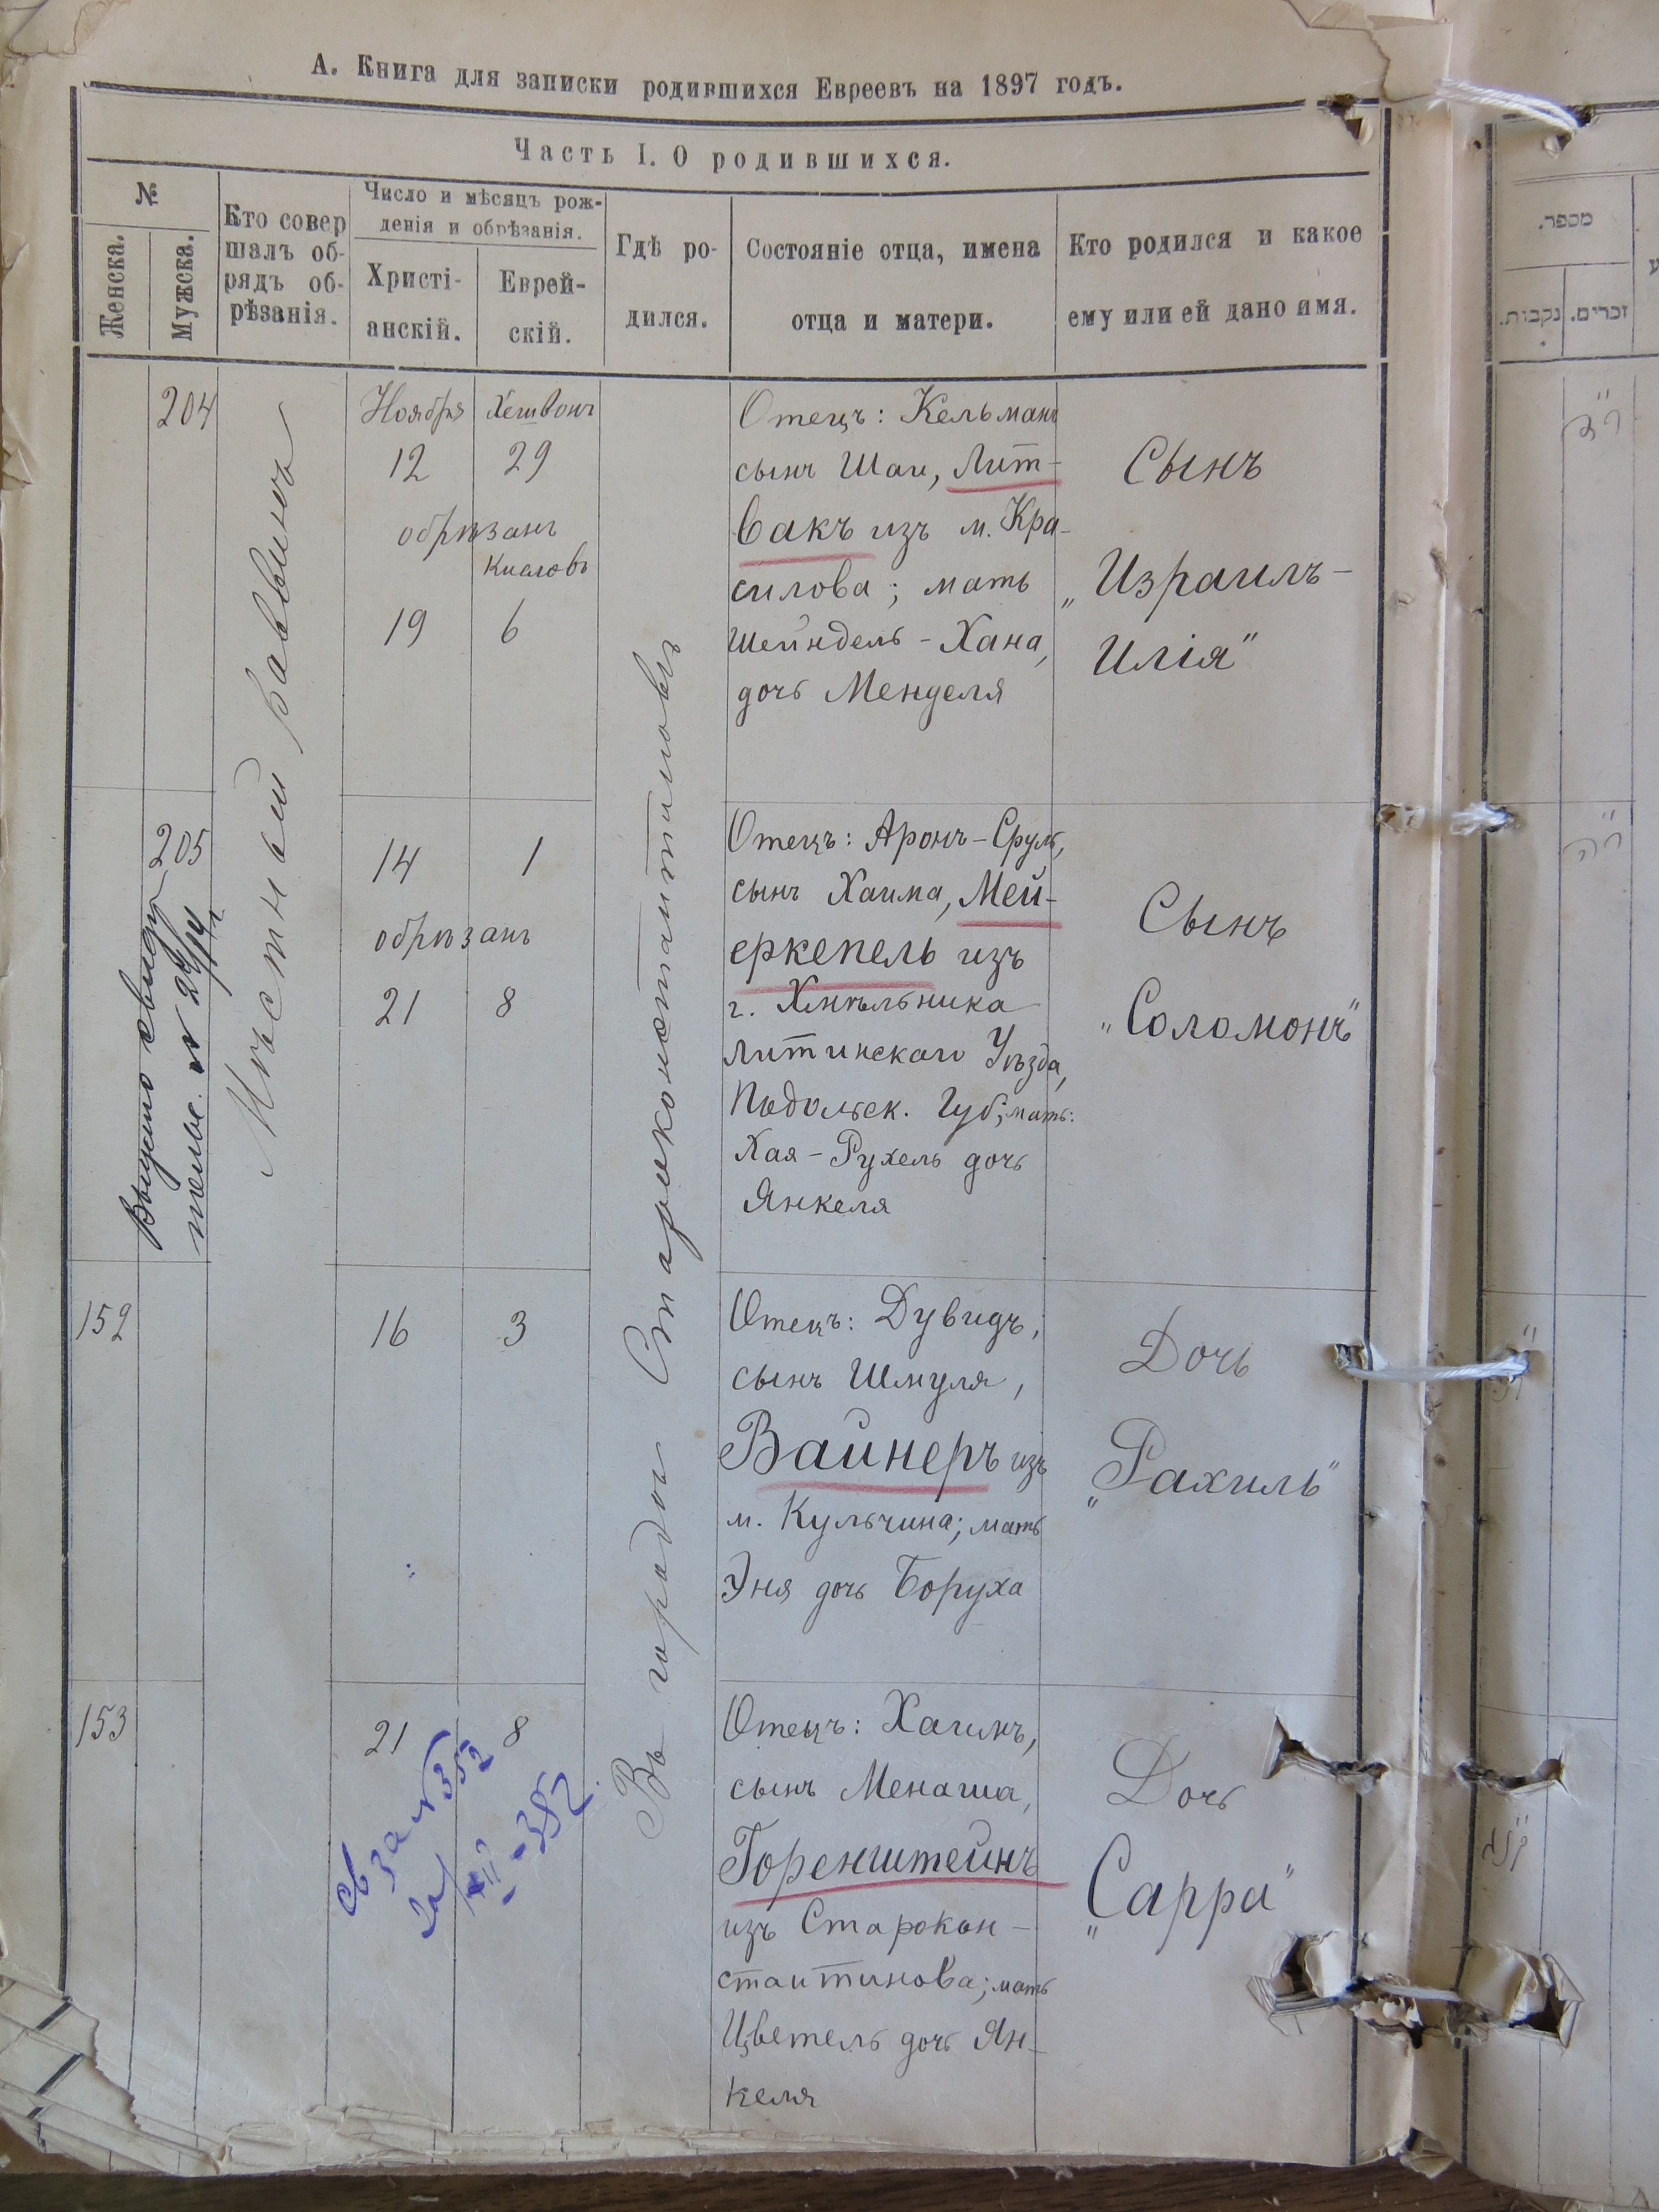 А. Книга для записки родившихся Евреевъ на 1897 годъ.
Часть I. О родившихся.
№
Женска.
Мужска.
Кто совер
шалъ об-
рядъ об-
рѣзанія.
Число и мѣсяцъ рож-
денія и обрѣзанія.
Христі-
анскій.
Еврей-
скій.
Гдѣ ро-
дился.
Состояніе отца, имена
отца и матери.
Кто родился и какое
ему или ей дано имя.
Мѣстный раввинъ
Въ городѣ Староконстантиновѣ
204
Ноября Хешвонъ
12 29
обрѣзанъ
Кисловъ
19 6
Отецъ: Кельманъ
сынъ Шаи, Лит-
вакъ изъ м. Кра-
силова; мать
Шейндель-Хана,
дочь Менделя
Сынъ
„Израиль-
Илія"
205
Выдано свидѣ-
тельс. №
14 1
обрѣзанъ
21 8
Отецъ: Аронъ-Сруль,
сынъ Хаима, Мей-
еркепель изъ
г. Хмѣльника
Литинскаго Уѣзда,
Подольск. Губ; мать:
Хая-Рухель дочь
Янкеля
Сынъ
„Соломонъ"
152
16 3
Отецъ: Дувидъ,
сынъ Шмуля,
Вайнеръ изъ
м. Кульчина; мать
Эня дочь Боруха
Дочь
„Рахиль"
153
21 8
Отецъ: Хаимъ,
сынъ Менаша,
Горенштейнъ
изъ Старокон-
стантинова; мать
Цветель дочь Ян-
келя
Дочь
„Сарра"
מספר.
נקבות.
זכרים.
ר״ד
ר״ה
קנ״ג